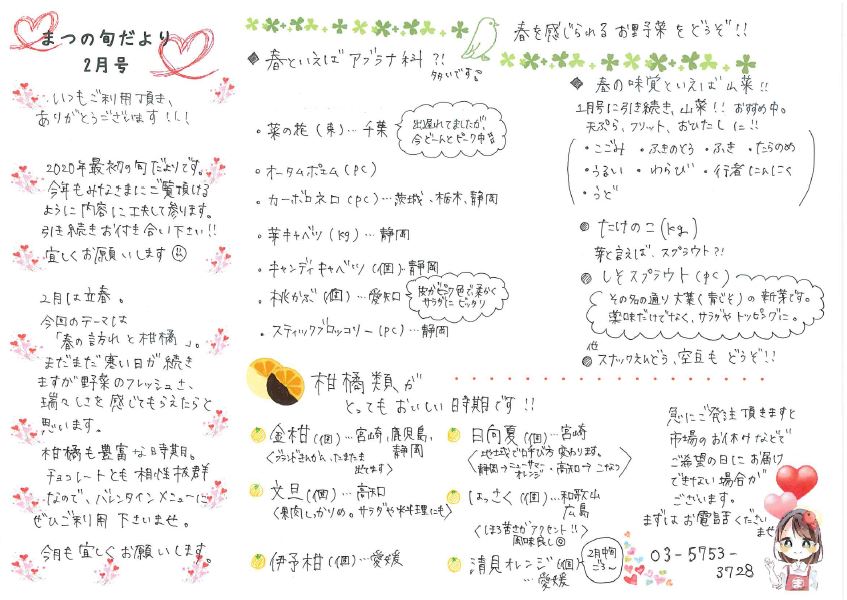 まつの旬だより
2月号
いつもご利用頂き、
ありがとうございます!!!
2020年最初の旬だよりです。
今年もみなさまにご覧頂ける
ように内容に工夫して参ります。
引き続きお付き合い下さい!!
宜しくお願いします
2月は立春。
今回のテーマは
「春の訪れと柑橘」。
まだまだ寒い日が続き
ますが野菜のフレッシュさ、
瑞々しさを感じてもらえたらと
思います。
柑橘も豊富な時期。
チョコレートとも相性抜群
なので、バレンタインメニューに
ぜひご利用下さいませ。
今月も宜しくお願いします。
◆春といえばアブラナ科?!
多いです。
・菜の花(束)…千葉
出遅れてましたが、
今どーんとピーク中
・オータムポエム(pc)
・カーボロネロ(pc)…茨城、栃木、静岡
・芽キャベツ(kg)…静岡
・キャンディキャベツ(個)…静岡
・桃かぶ(個)…愛知
皮がピンク色で柔かく
サラダにピッタリ
・スティックブロッコリー(pc)…静岡
春を感じられるお野菜をどうぞ!!
◆春の味覚といえば山菜!!
1月号に引き続き、山菜!!おすすめ中。
天ぷら、フリット、おひたしに!!
・こごみ ・ふきのとう ・ふき ・たらのめ
・うるい ・わらび ・行者にんにく
・うど
たけのこ(kg)
芽と言えば、スプラウト?!
しそスプラウト(pc)
その名の通り大葉(青じそ)の新芽です。
薬味だけでなく、サラダやトッピングに。
他
スナックえんどう、空豆もどうぞ!!
柑橘類が
とってもおいしい時期です!!
金柑(個)…宮崎、鹿児島、
静岡
〈ブランドきんかん、たまたま
出てます〉
文旦(個)…高知
〈果肉しっかりめ。サラダや米料理にも〉
伊予柑(個)…愛媛
日向夏(個)…宮崎
〈地域で呼び方変わります。
静岡→ニューサマーオレンジ・高知→こなつ〉
はっさく(個)…和歌山
広島
〈ほろ苦さがアクセント!!
風味良し◎〉
清見オレンジ(個)
…愛媛
2月中旬
ごろ〜
急にご発注頂きますと
市場のお休みなどで
ご希望の日にお届け
できない場合が
ございます。
まずはお電話ください
ませ
03-5753-
3728